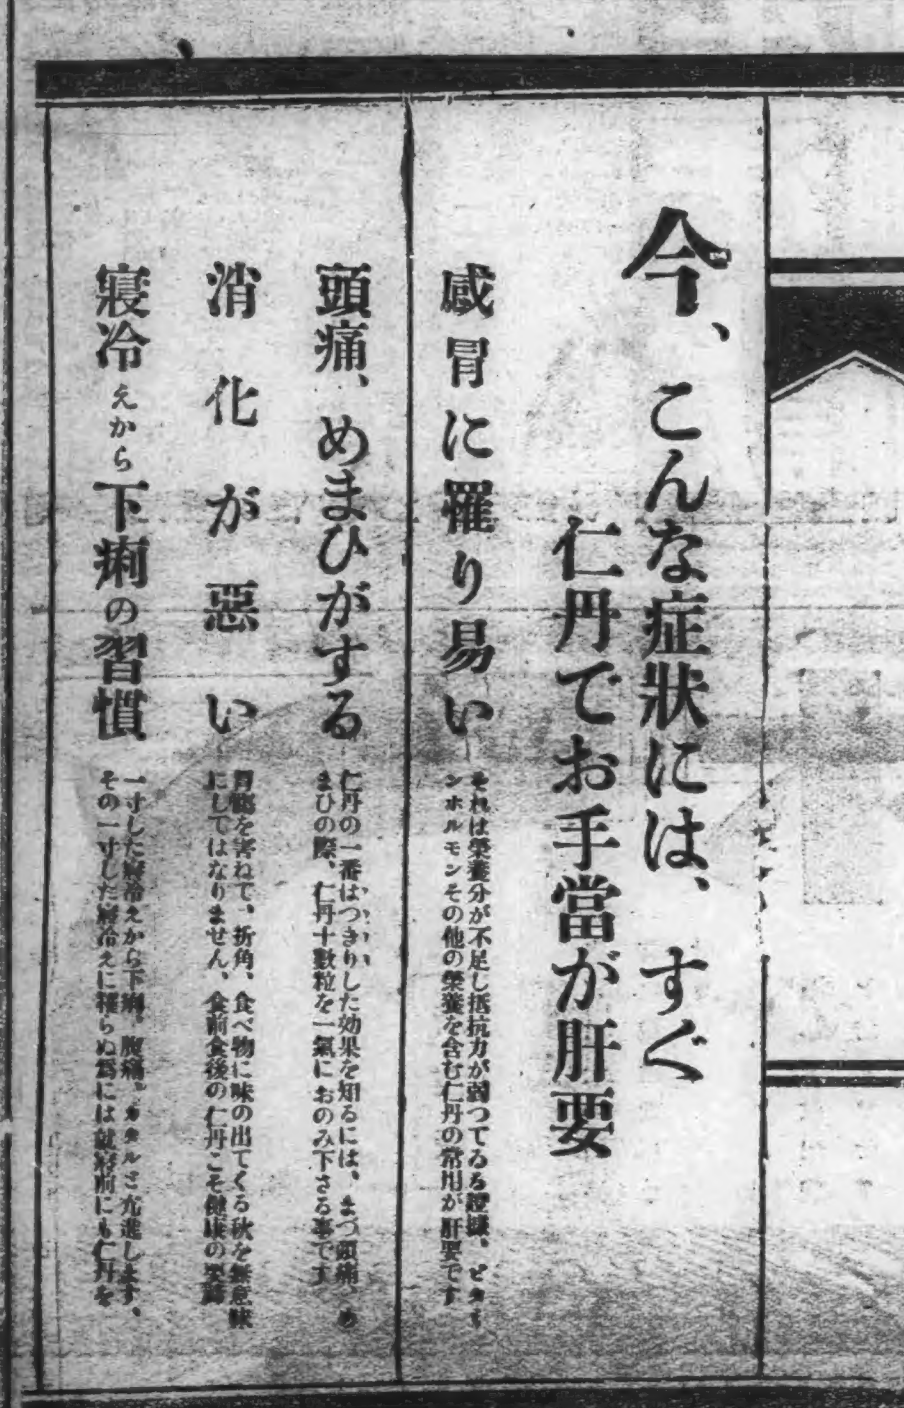 今、こんな症狀には、すぐ
仁丹でお手當が肝要
感冒に罹り易い
それは榮養分が不足し抵抗力が弱つてゐる證據、ビタミ
ンホルモンその他の榮養を含む仁丹の常用が肝要です
頭痛、めまひがする
仁丹の一番はつきりした効果を知るには、まづ頭痛、め
まひの際、仁丹十數粒を一氣におのみ下さる事です
消化が惡い
胃腸を害ねて、折角、食べ物に味の出てくる秋を無意味
にしてはなりません、食前食後の仁丹こそ健康の要諦
寢冷えから下痢の習慣
一寸した寢冷えから下痢、腹痛、カタルと亢進します、
その一寸した寢冷えに罹らぬ爲には就寢前にも仁丹を